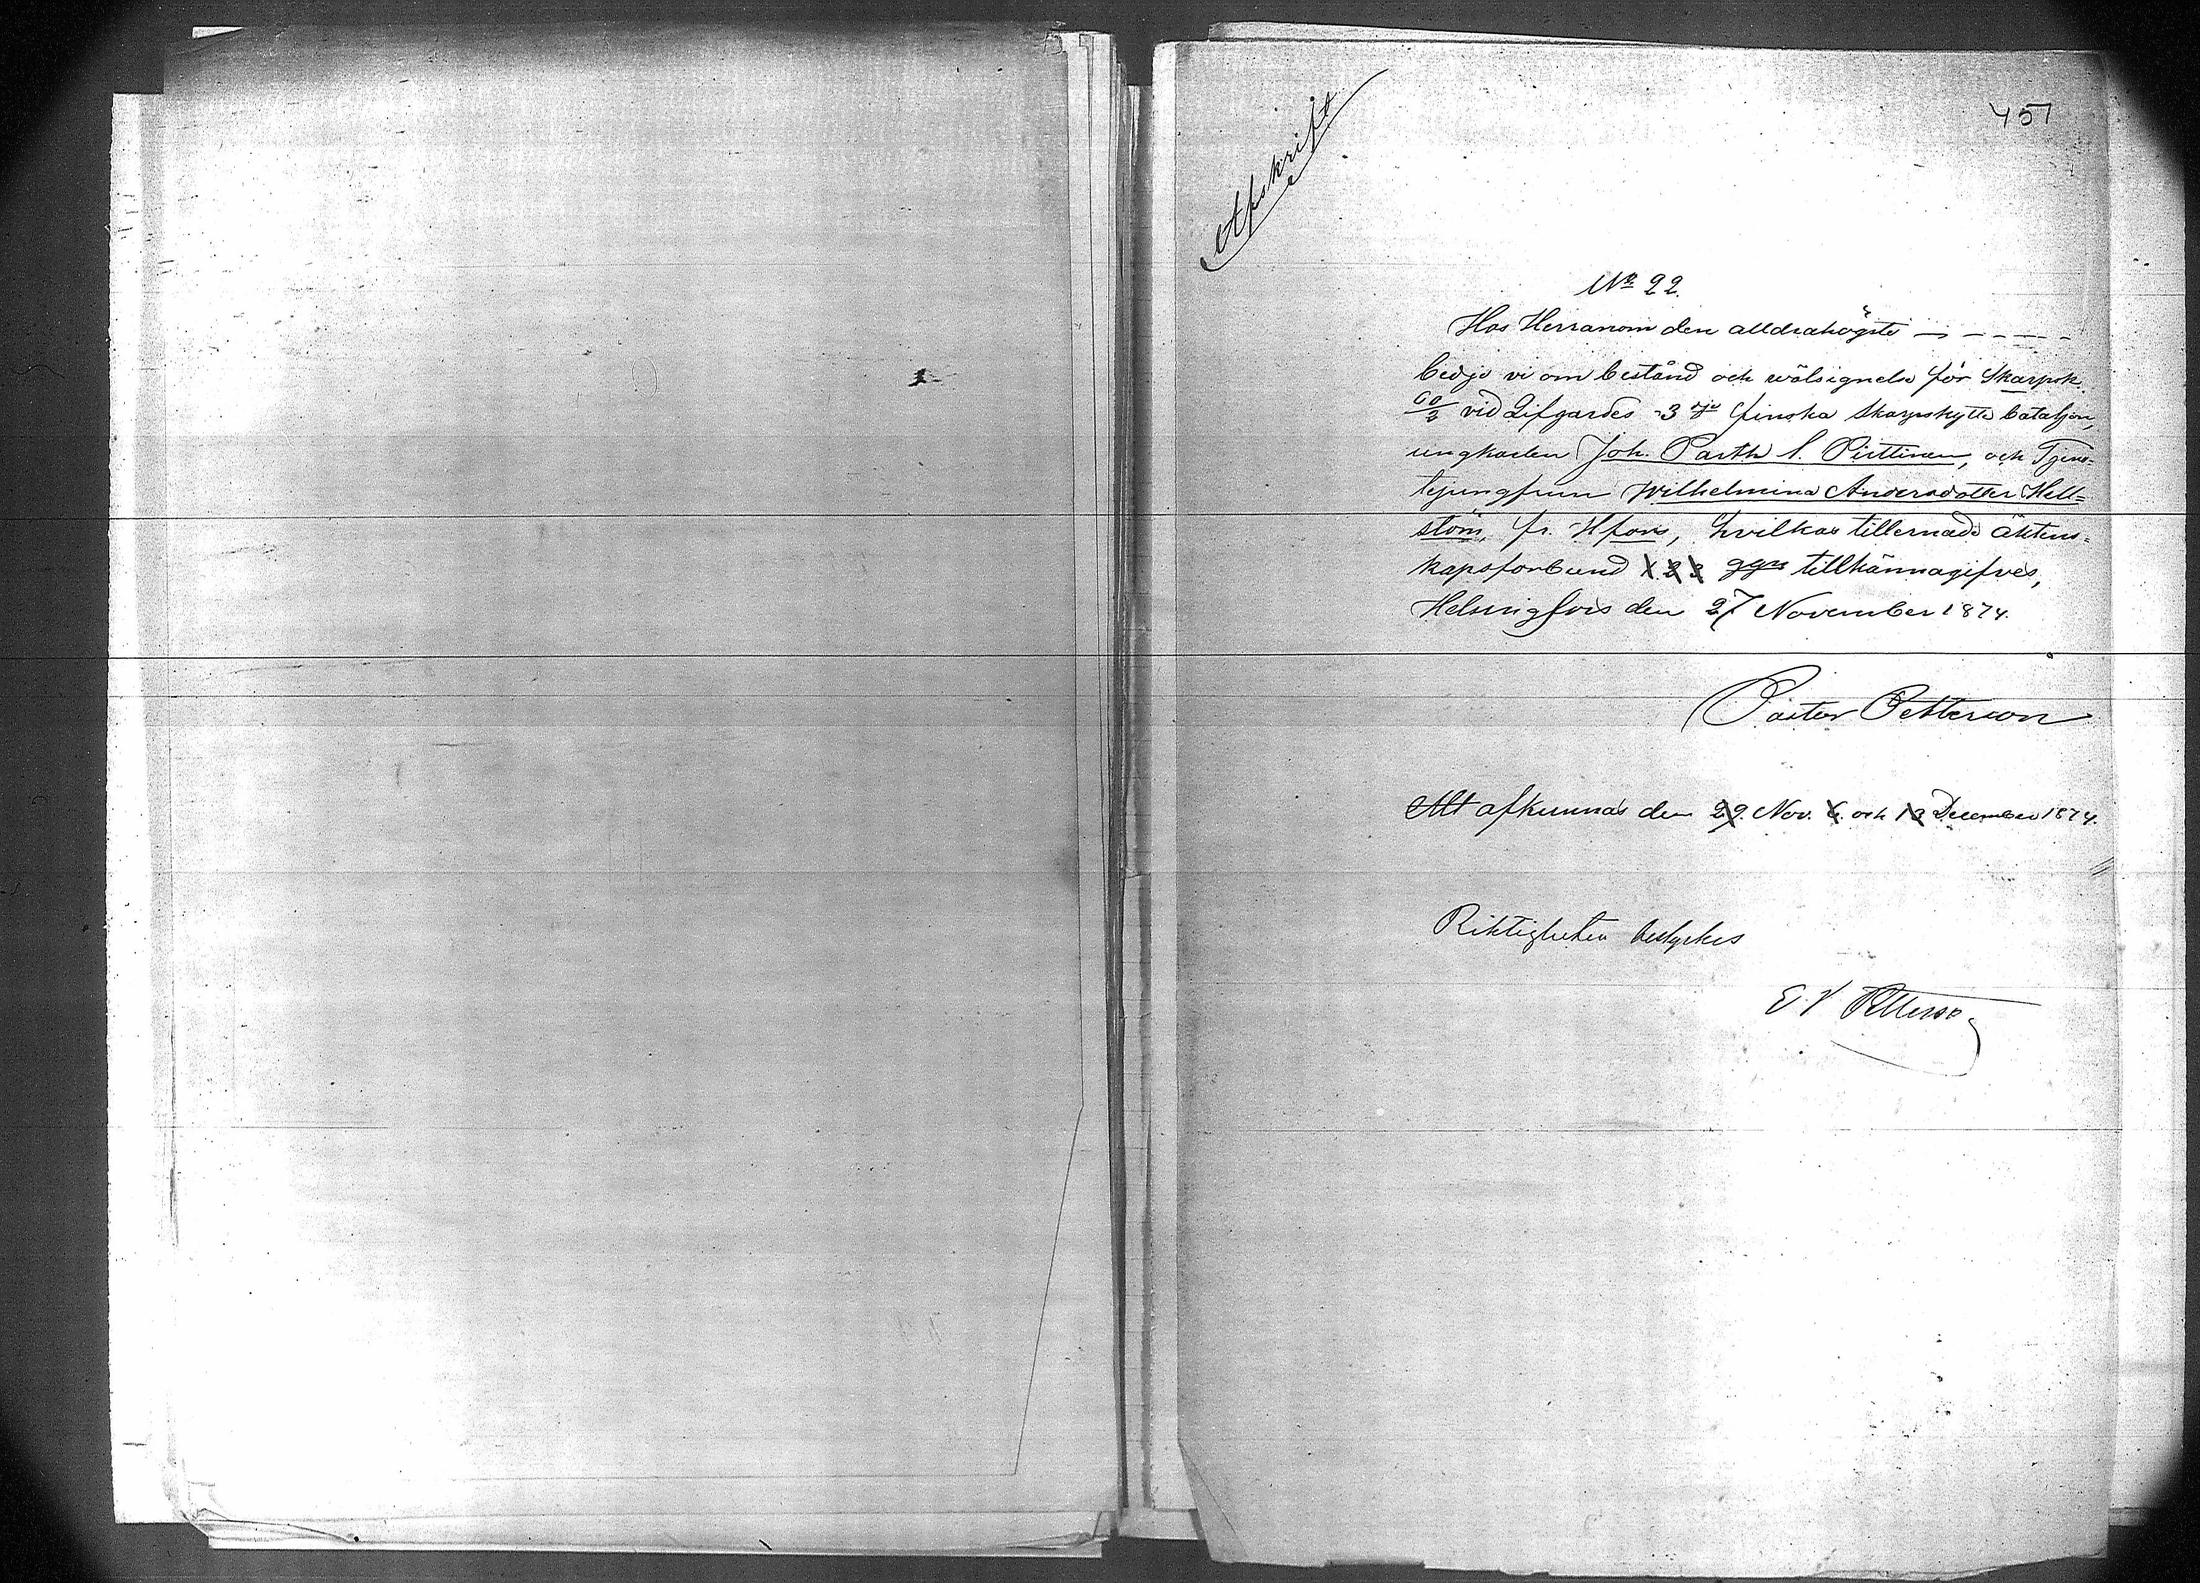 457
Afskrift
No 22.
Hos Herranom den alldrahögste — - - - -
bedje vi om bestånd och wälsignelse för Skarpsk.
60/2 vid Lifgardes 3dje finska Skarpskytte bataljon,
ungkarlen Joh. Parth. S. Pirttinen, och Tjens-
tejungfrun Wilhelmina Andersdotter Hell-
ström, fr. Hfors, hvilkas tillernade äktens-
kapsforbund 1. 2 3 ggn tillkännagifves,
Helsingfors den 27 November 1874.
Pastor Petterson
Att afkunnas den 29. Nov. 6. och 13 December 1874.
Riktigheten bestyrkes
E V Petterson